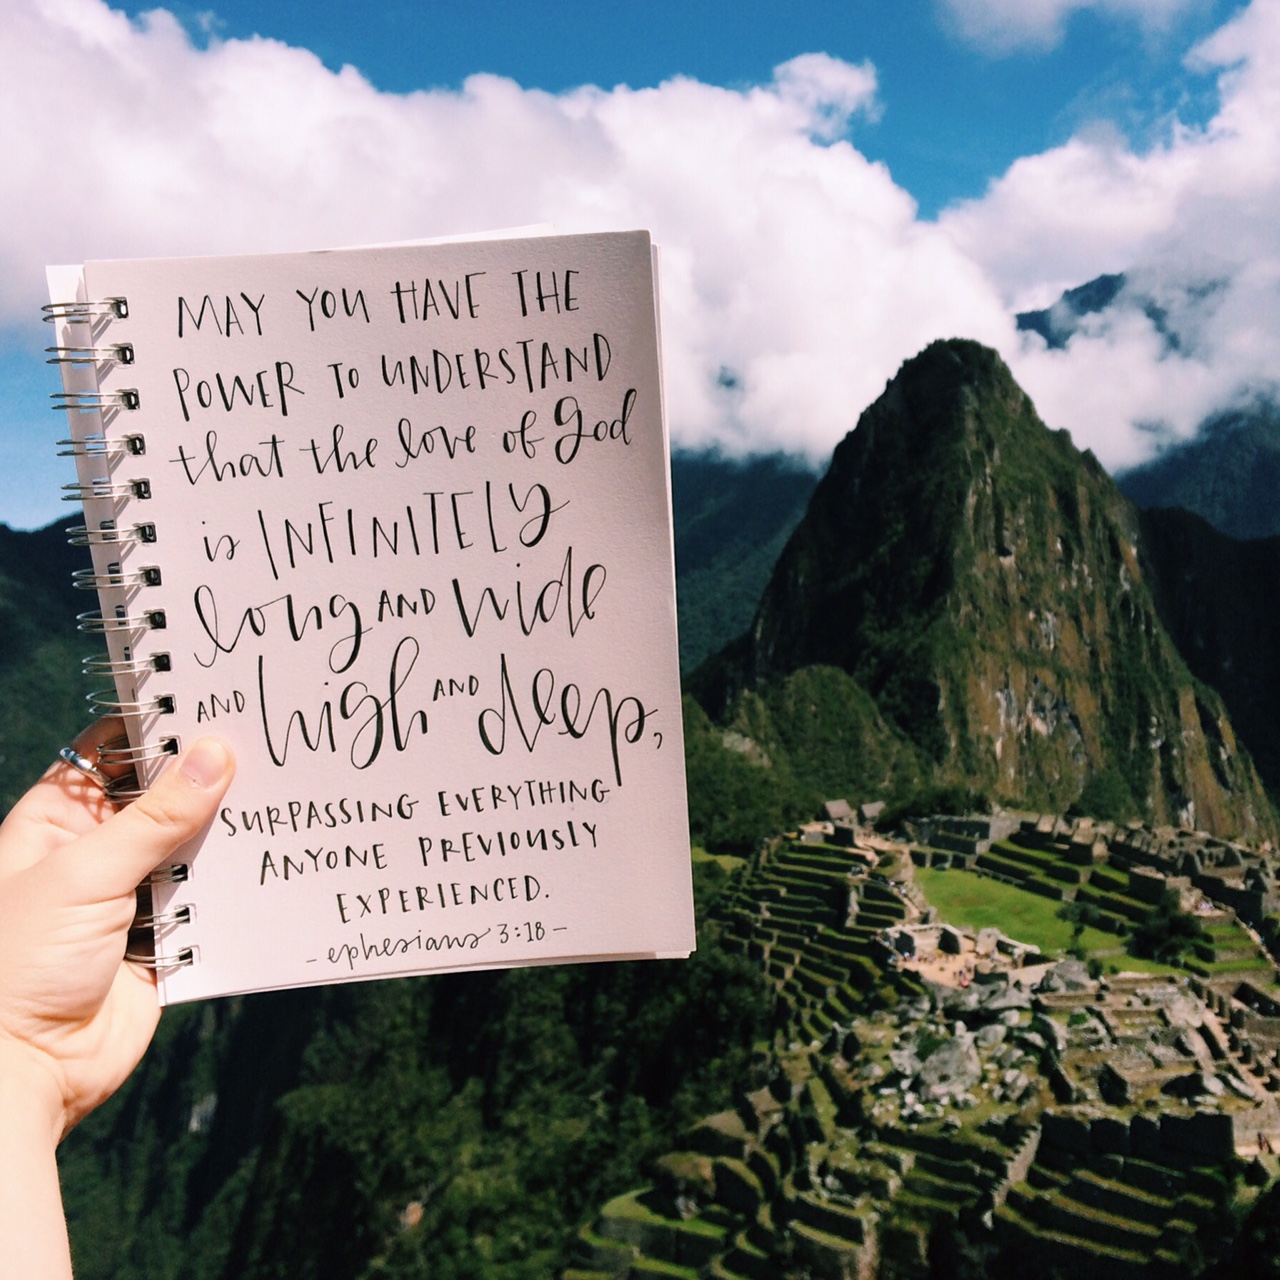 MAY YOU HAVE THE
POWER TO UNDERSTAND
that the love of God
is INFINITELY
long AND wide
AND high AND deep,
SURPASSING EVERYTHING
ANYONE PREVIOUSLY
EXPERIENCED.
- ephesians 3:18 -